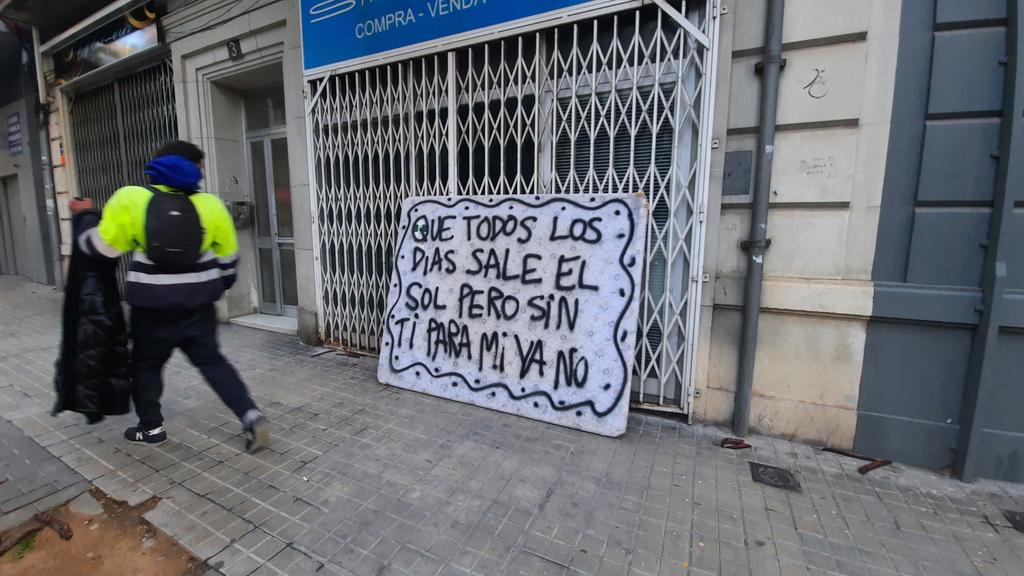 COMPRA - VENDA
3
QUE TODOS LOS
DIAS SALE EL
SOL PERO SIN
TI PARA MI VA NO